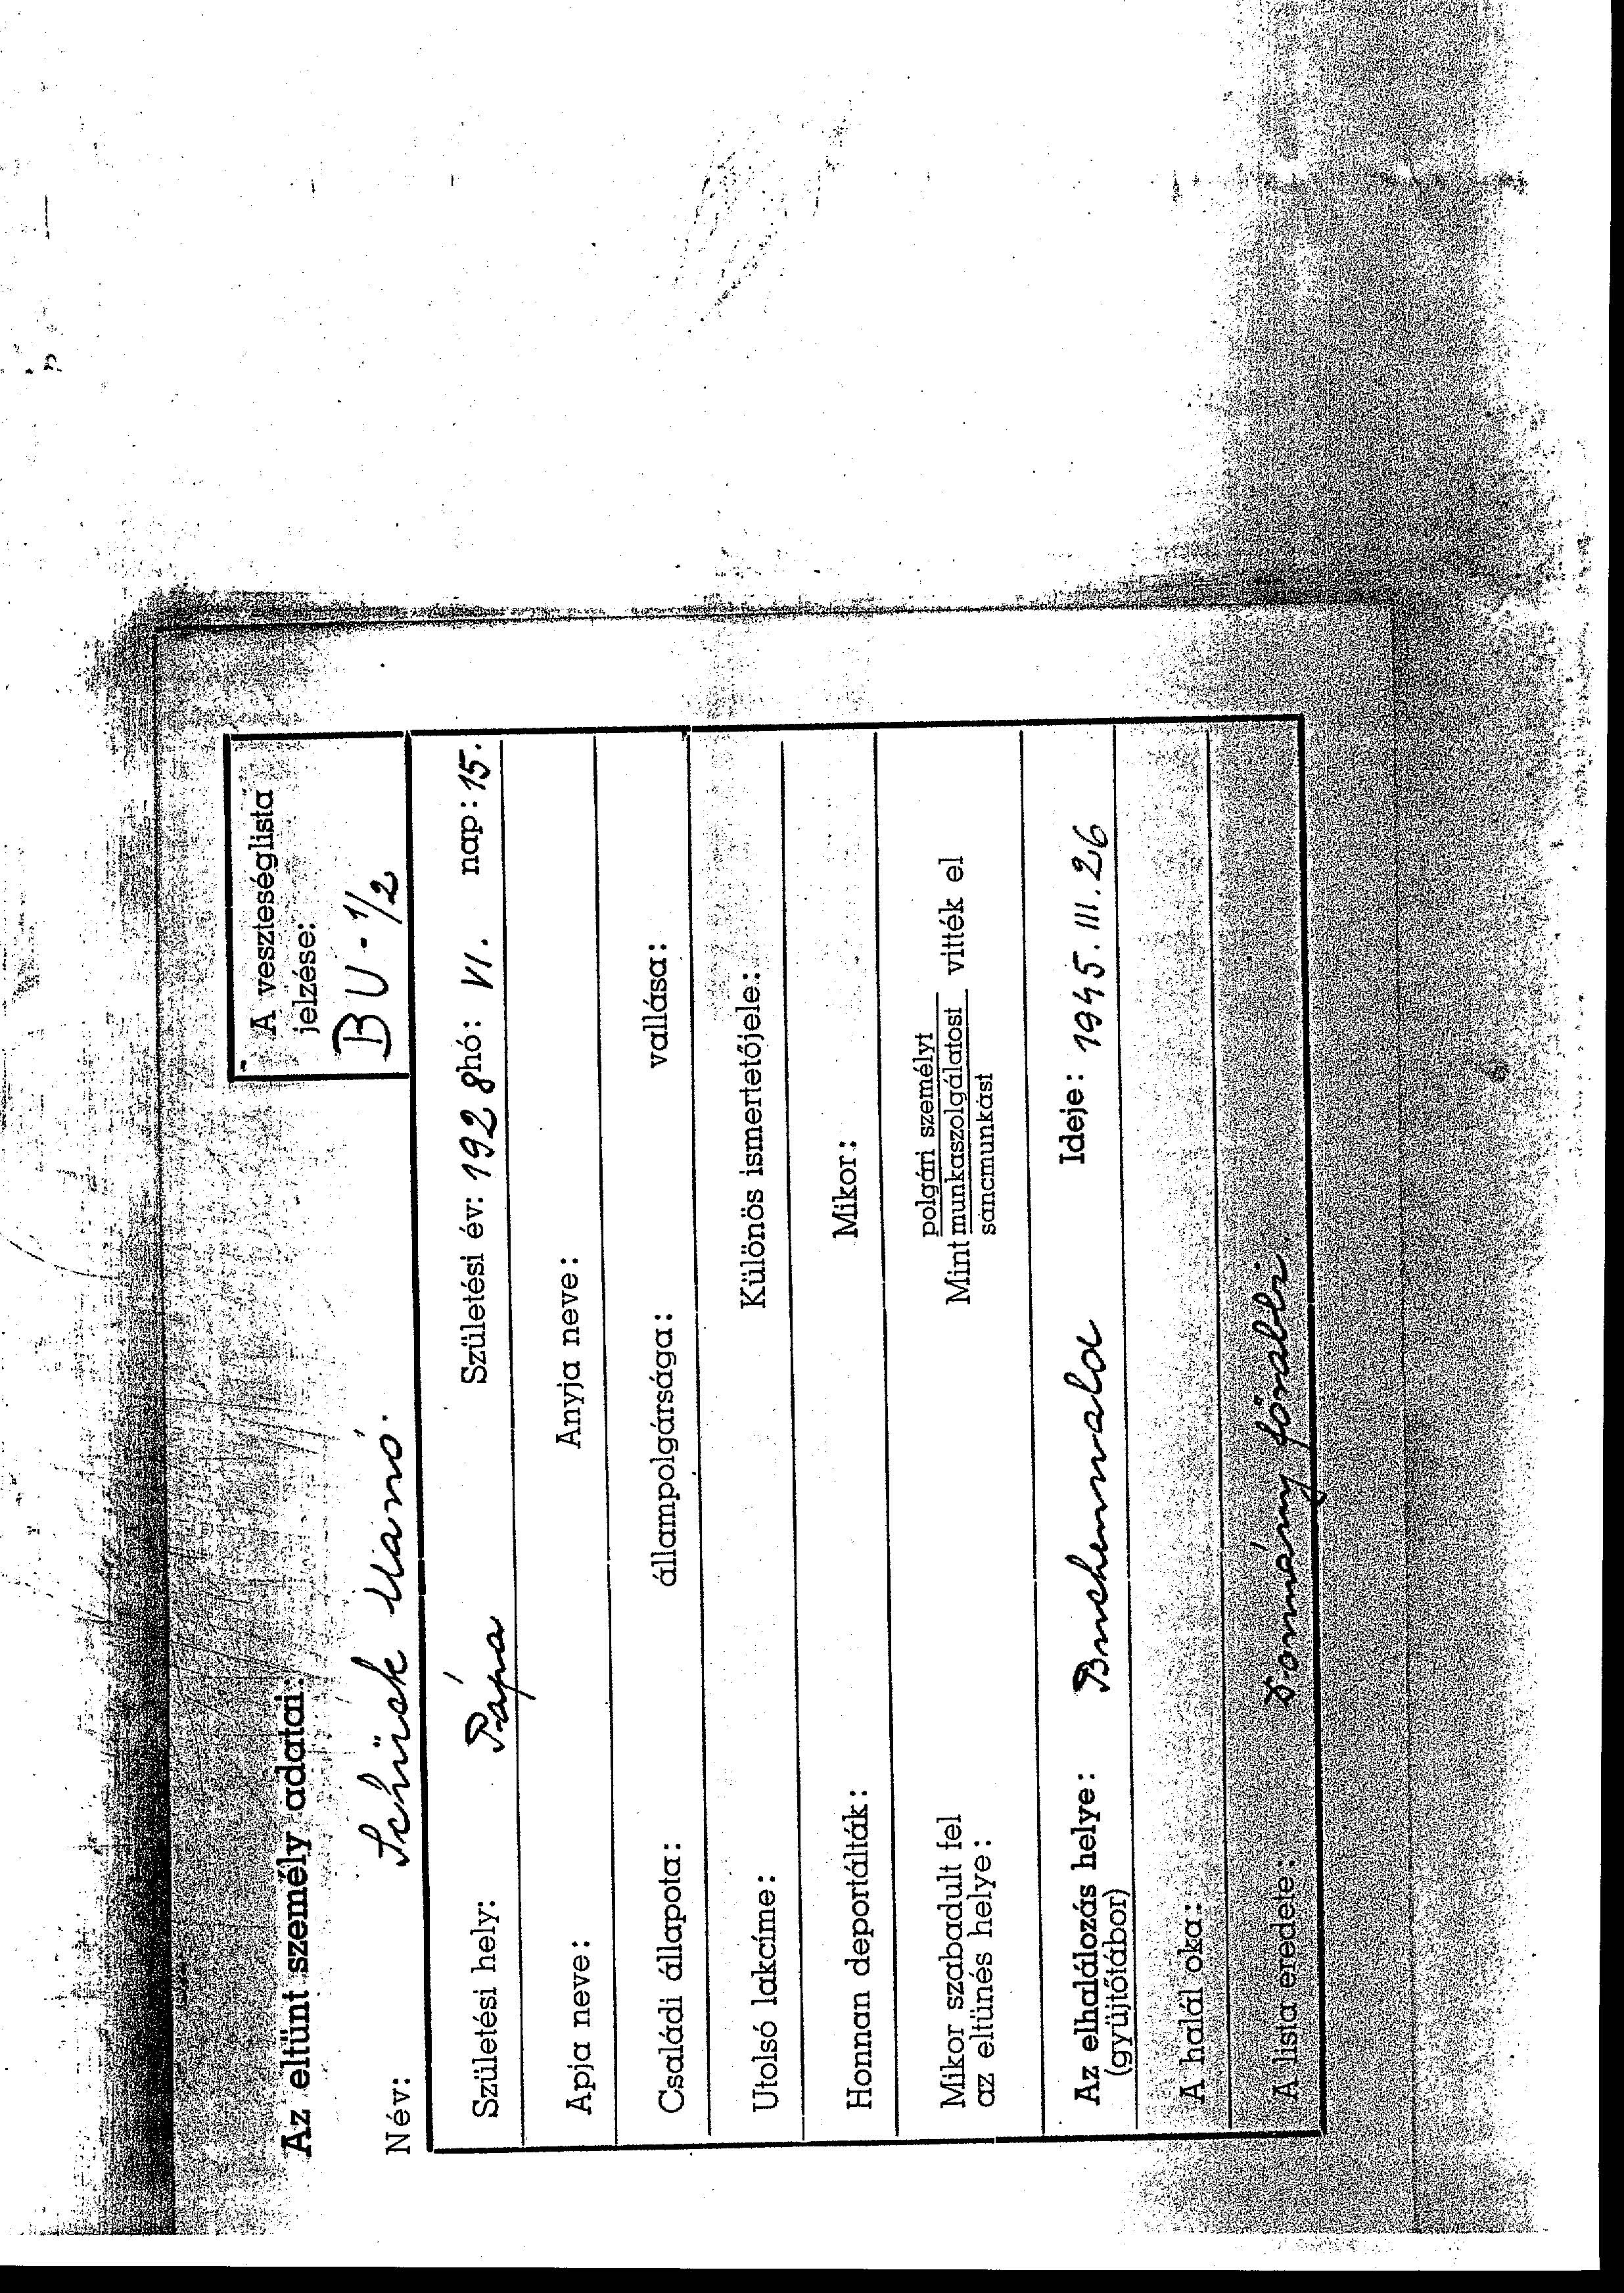 A veszteséglista
jelzése:
BU-1/2
Az eltünt személy adatai:
Név: Schück Manó.
Születési hely: Pápa Születési év: 1928 hó: VI. nap: 15.
Apja neve: Anyja neve:
Családi állapota: állampolgársága: vallása:
Utolsó lakcíme: Különös ismertetőjele:
Honnan deportálták: Mikor:
Mikor szabadult fel
az eltünés helye:
polgári személyt
Mint munkaszolgálatost vitték el
sáncmunkást
Az elhalálozás helye: Buchenwald Ideje: 1945. III. 26
(gyüjtőtábor)
A halál oka:
A lista eredete: Dománÿ főrabbi